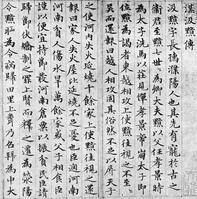 漢汲黯傳
汲黯字長孺濮陽人也其先有寵於古之
衛君至黯七世世為卿大夫黯以父任孝景時
為太子洗馬以莊見憚孝景帝崩太子即
位黯為謁者東越相攻上使黯往視之不
至吳而還報曰越人相攻固其俗然不足以辱天子
之使河內失火延燒千餘家上使黯往視之還
報曰家人失火屋比延燒不足憂也臣過河南
河南貧人傷水旱萬餘家或父子相食臣
謹以便宜持節發河南倉粟以振貧民臣請
歸節伏矯制罪上賢而釋之遷為滎陽
令黯恥為令病歸田里上聞乃召拜為中大